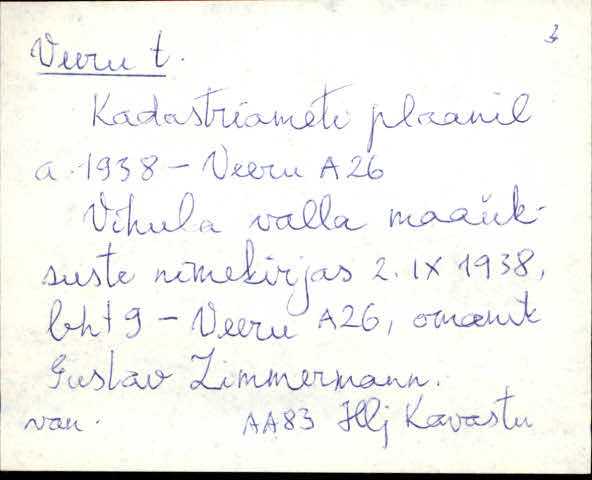 3
Veeru t.
Kadastriameti plaanil
a. 1938 - Veeru A26
Vihula valla maaük-
suste nimekirjas 2. IX 1938,
lht 9 - Veeru A26, omanik
Gustav Zimmermann.
van. AA83 Hlj Kavastu